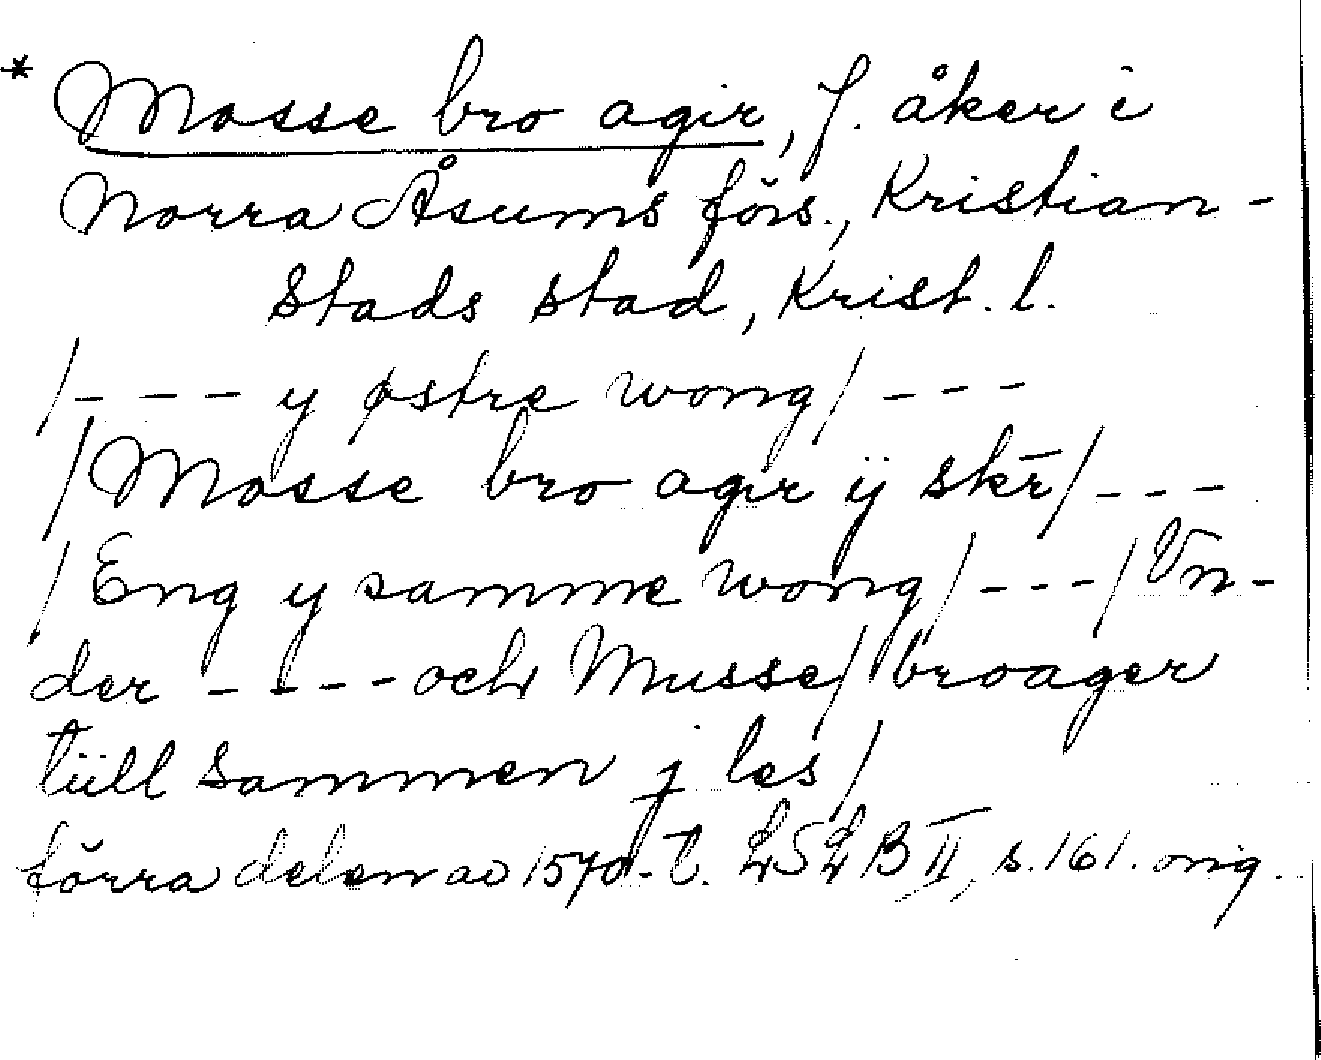 * Mosse bro agir, f. åker i
Norra Åsums förs., Kristian-
stads stad, Krist. l.
/- - - y østre wong/ - - -
/Mosse bro agir ÿ skr̄/ - - -
/Eng y samme wong/ - - - /Vn-
der - - - - och Musse/broager
tüll sammen j les/
förra delen av 1570-t. LSLB II, s. 161. orig.